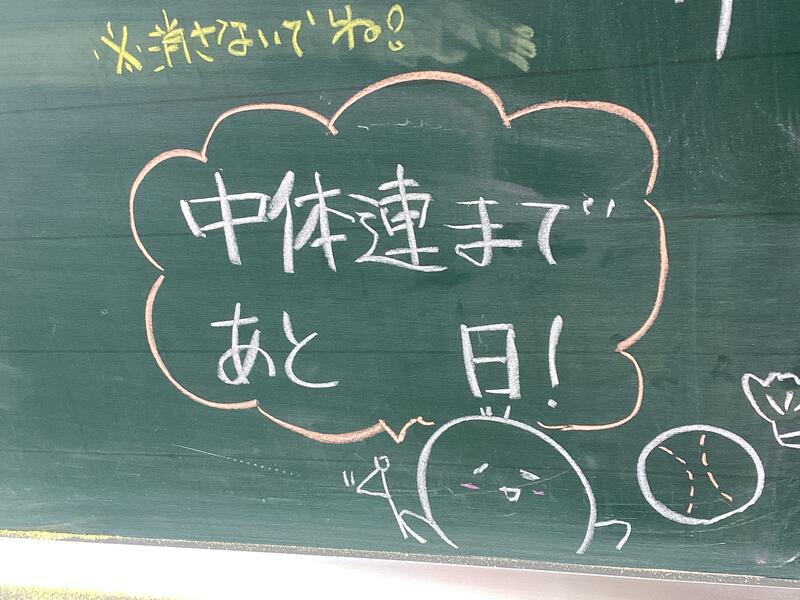 ※消さないでね!
中体連まで
あと　日!